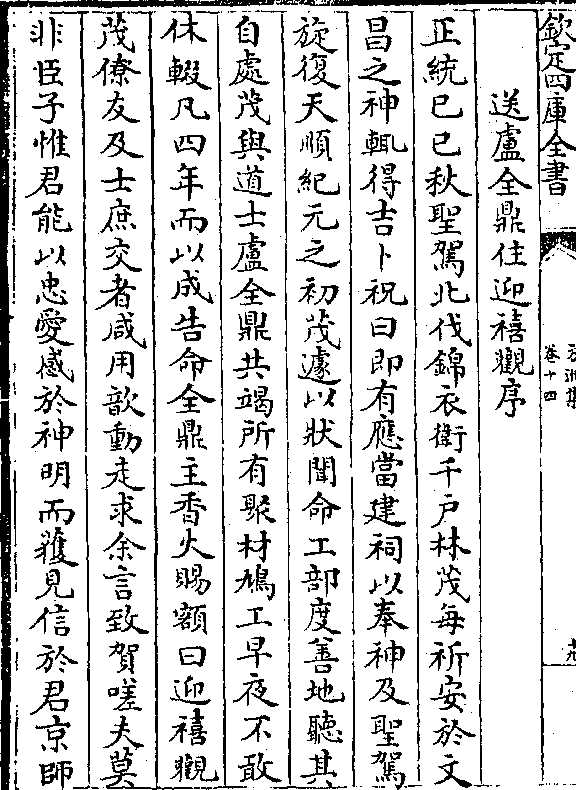 欽定四庫全書
卷十四
送盧全鼎住迎禧觀序
正統己巳秋聖駕北伐錦衣衛千戶林茂每祈安於文
昌之神輒得吉卜祝曰即有應當建祠以奉神及聖駕
旋復天順紀元之初茂遽以狀聞命工部度善地聽其
自處茂與道士盧全鼎共竭所有聚材鳩工早夜不敢
休輟凡四年而以成告命全鼎主香火賜額曰迎禧觀
茂僚友及士庶交者咸用歆動走求余言致賀嗟夫莫
非臣子惟君能以忠愛感於神明而獲見信於君京師